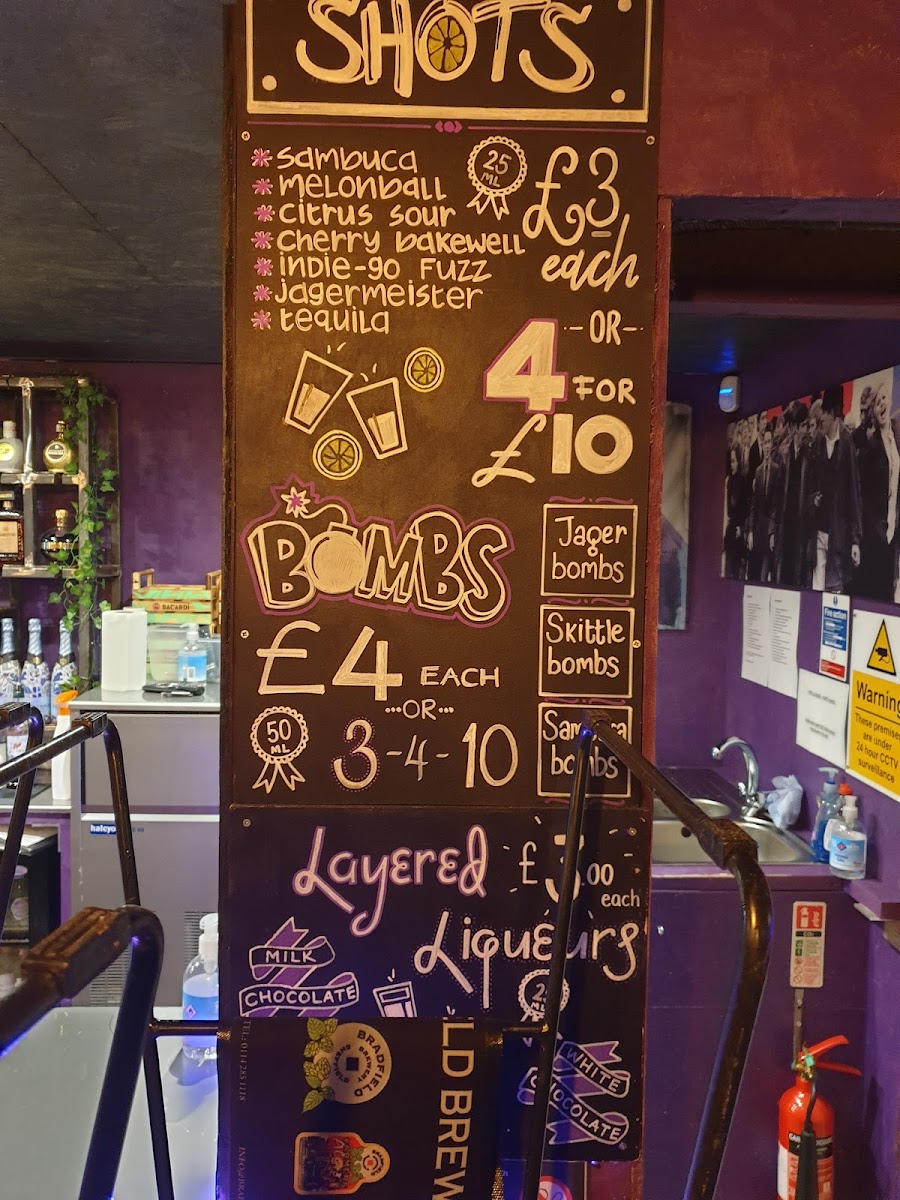 SHOTS
sambuca
melonball
citrus sour
cherry bakewell
indie-go fuzz
jagermeister
tequila
25
ML
£3
each
-OR-
4 FOR
£10
BOMBS
£4 EACH
...OR...
50
ML
3-4-10
Jager
bombs
Skittle
bombs
bombs
Layered
Liqueurs
each
MILK
CHOCOLATE
WHITE
CHOCOLATE
BRADFIELD
BREWERY
LD BREW
BACARDI
halcyo
Fire action
Warning
These premises
are under
24 hour CCTV
surveillance